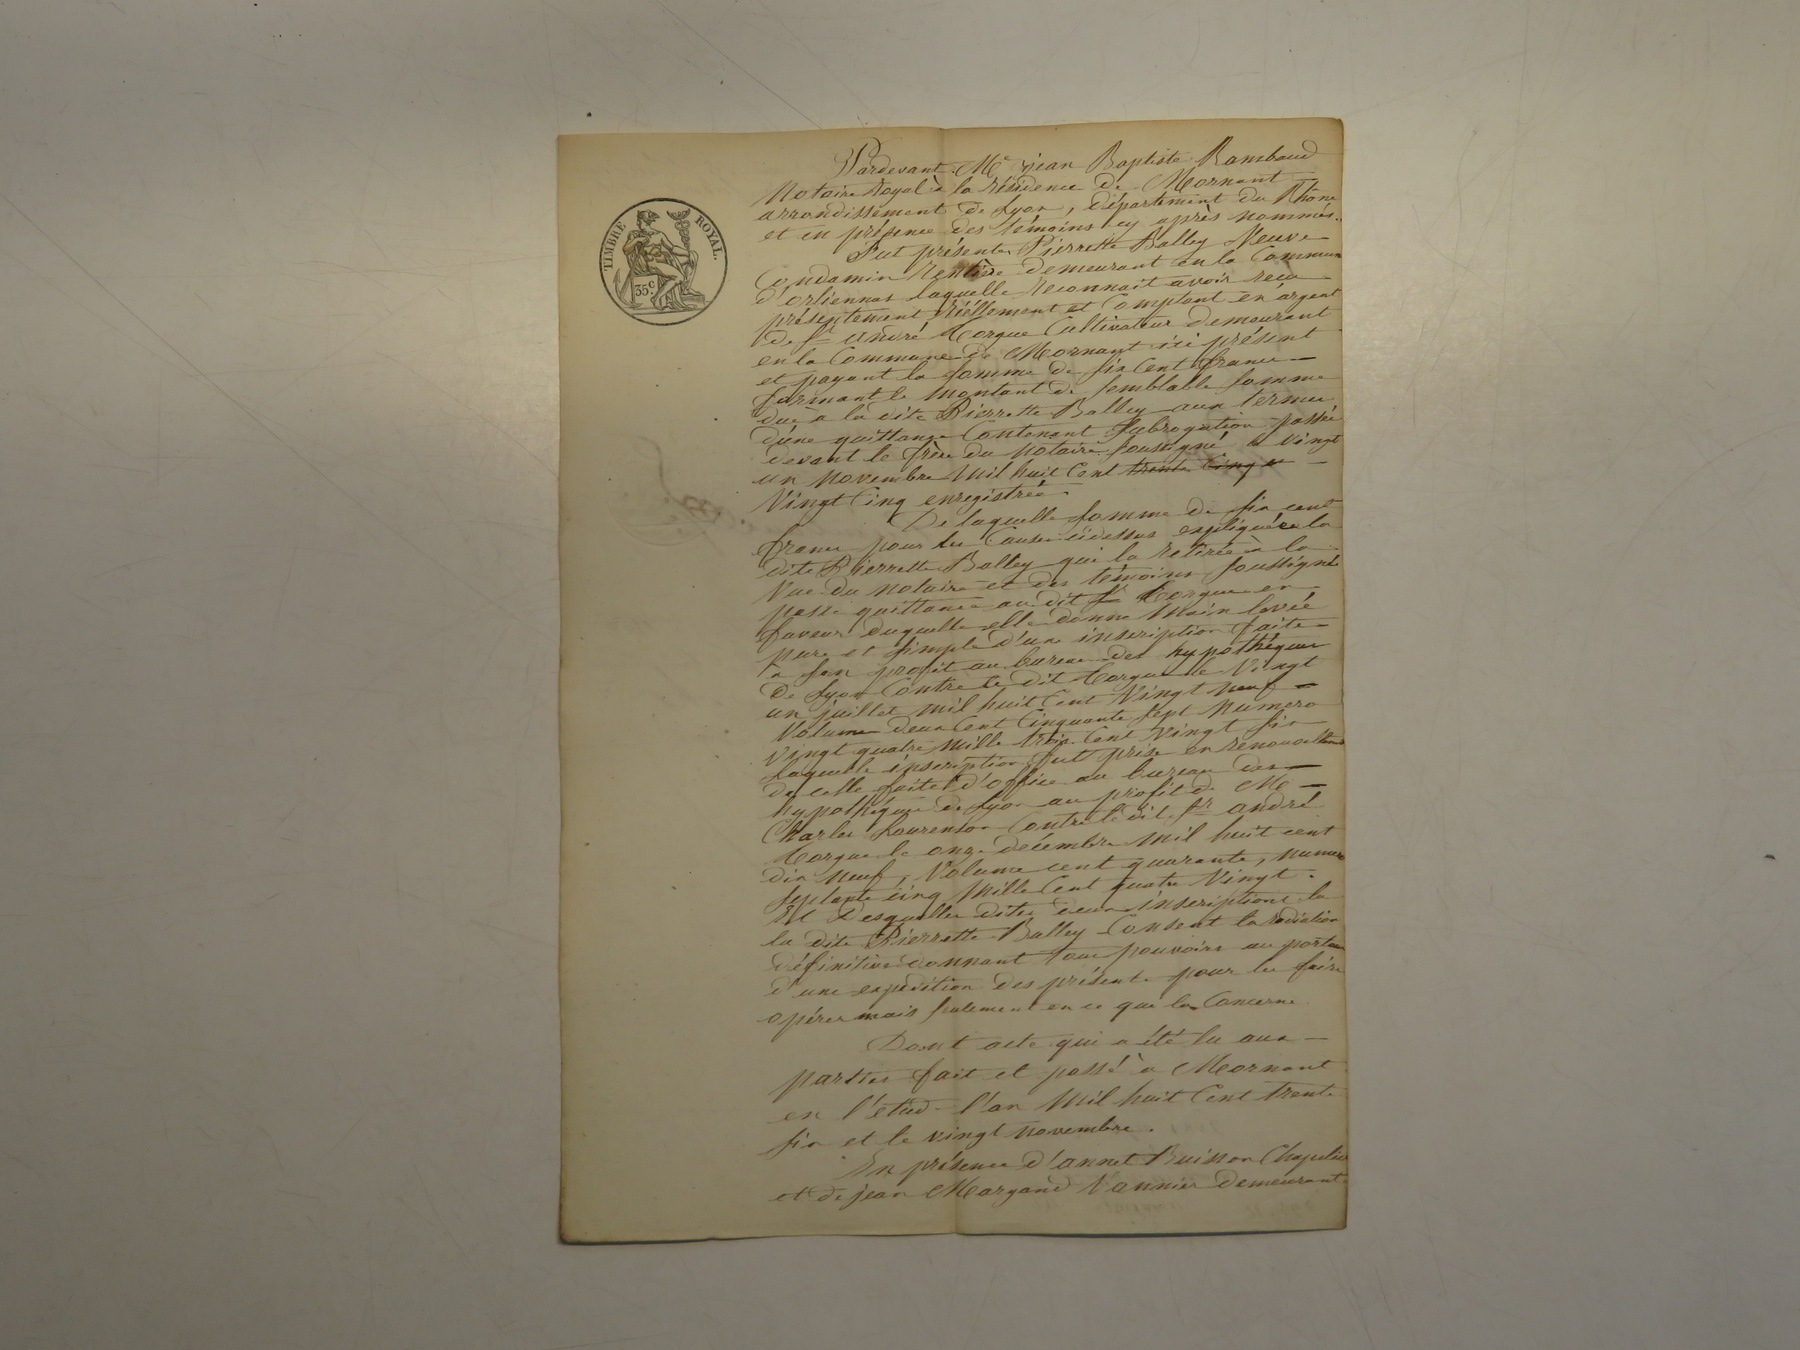 TIMBRE ROYAL.
35c
Pardevant Me jean Baptiste Rambaud
Notaire Royal à la résidence de Mornant
arrondissement de Lyon, département du Rhône
et en présence des témoins cy après nommés.
Fut présente Pierrette Balley Veuve
Condamin Rentière demeurant en la Commune
d'orliennas laquelle reconnait avoir reçu
présentement réellement et Comptant en argent
de Sr andré Corgue Cultivateur demeurant
en la Commune de Mornant ici présent
et payant la somme de six Cent francs
formant le montant de semblable somme
due à la dite Pierrette Balley aux termes
d'une quittance Contenant Subrogation passée
devant le frère du notaire soussigné le vingt
un novembre mil huit Cent trente Cinq
Vingt Cinq enregistrée.
De laquelle somme de six cent
francs pour les Causes cidessus expliquées la
dite Pierrette Balley qui la retirée à la
Vue du notaire et des témoins soussignés
passe quittance au dit Sr Corgue en
faveur duquel elle donne main levée
pure et simple d'une inscription faite
à son profit au bureau des hypothèques
de Lyon Contre le dit Corgue le Vingt
un juillet mil huit Cent Vingt neuf
Volume deux Cent Cinquante Sept numero
Vingt quatre mille trois Cent Vingt six
laquelle inscription fut prise en renouvellement
de celle faite d'office au bureau des
hypothèques de Lyon au profit de Me
Charles Lourenson Contre le dit Sr andré
Corgue le onze décembre mil huit cent
dix neuf, Volume cent quarante, numero
septante cinq mille Cent quatre Vingt.
Et desquelles dites deux inscriptions la
la dite Pierrette Balley Consent la radiation
définitive donnant tous pouvoirs au porteur
d'une expédition des présentes pour les faire
opérer mais seulement en ce qui la Concerne.
Dont acte qui a été lu aux
parties fait et passé à Mornant
en l'étude l'an mil huit Cent trente
six et le vingt novembre.
En présence d'annet Buisson Chapelier
et de jean Margand Vannier demeurant